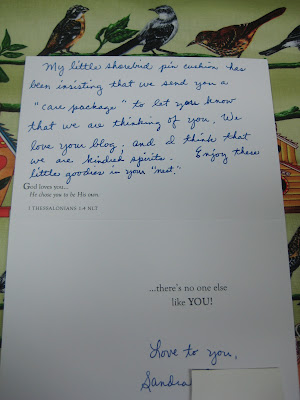 My little shorebird pin cushion has
been insisting that we send you a
"care package" to let you know
that we are thinking of you. We
love your blog, and I think that
we are kindred spirits. Enjoy these
little goodies in your "nest."
God loves you...
He chose you to be His own.
1 THESSALONIANS 1:4 NLT
...there's no one else
like YOU!
Love to you,
Sandra